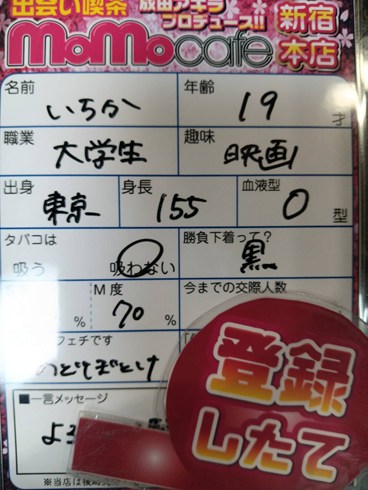 出会い喫茶 成田アキラ
プロデュース!!
MoMocafe 新宿本店
名前 いちか 年齢 19 才
職業 大学生 趣味 映画
出身 東京 身長 155 血液型 O 型
タバコは 吸う 吸わない 勝負下着って? 黒
% M度 70 % 今までの交際人数
フェチです のどぼとけ
登録
したて
■一言メッセージ
よろ
※当店は